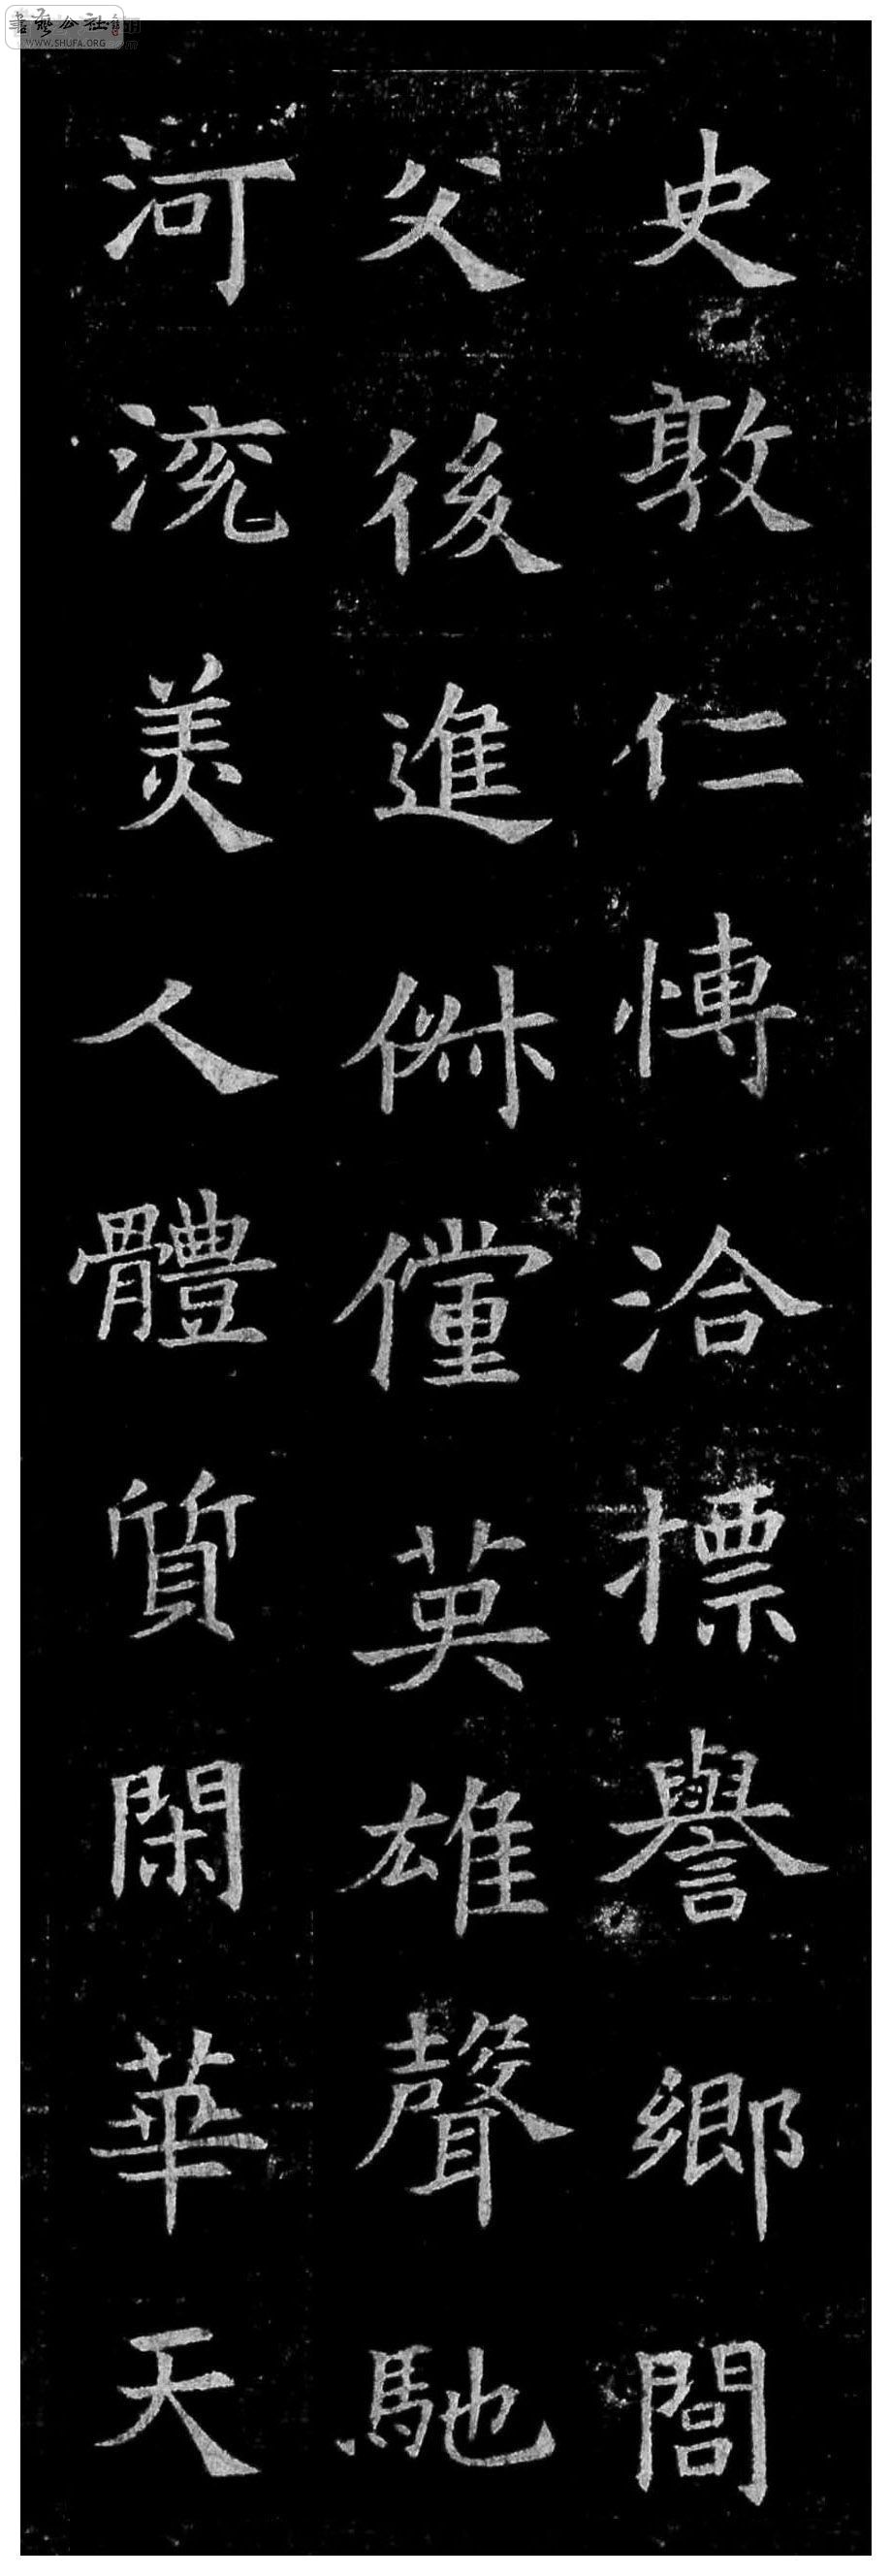 史敦仁博洽摽譽鄉閭
父後進傑儻英雄聲馳
河流美人體質閑華天
書藝公社
WWW.SHUFA.ORG